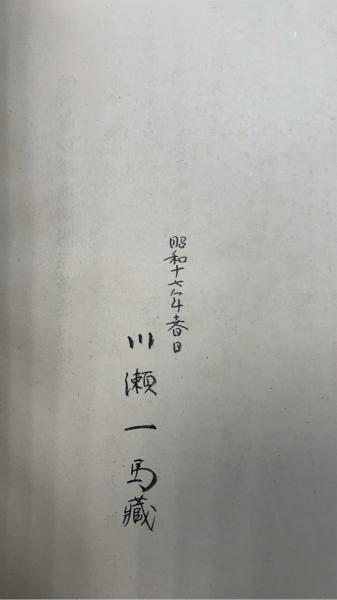 昭和十七年春日
川瀬一馬藏